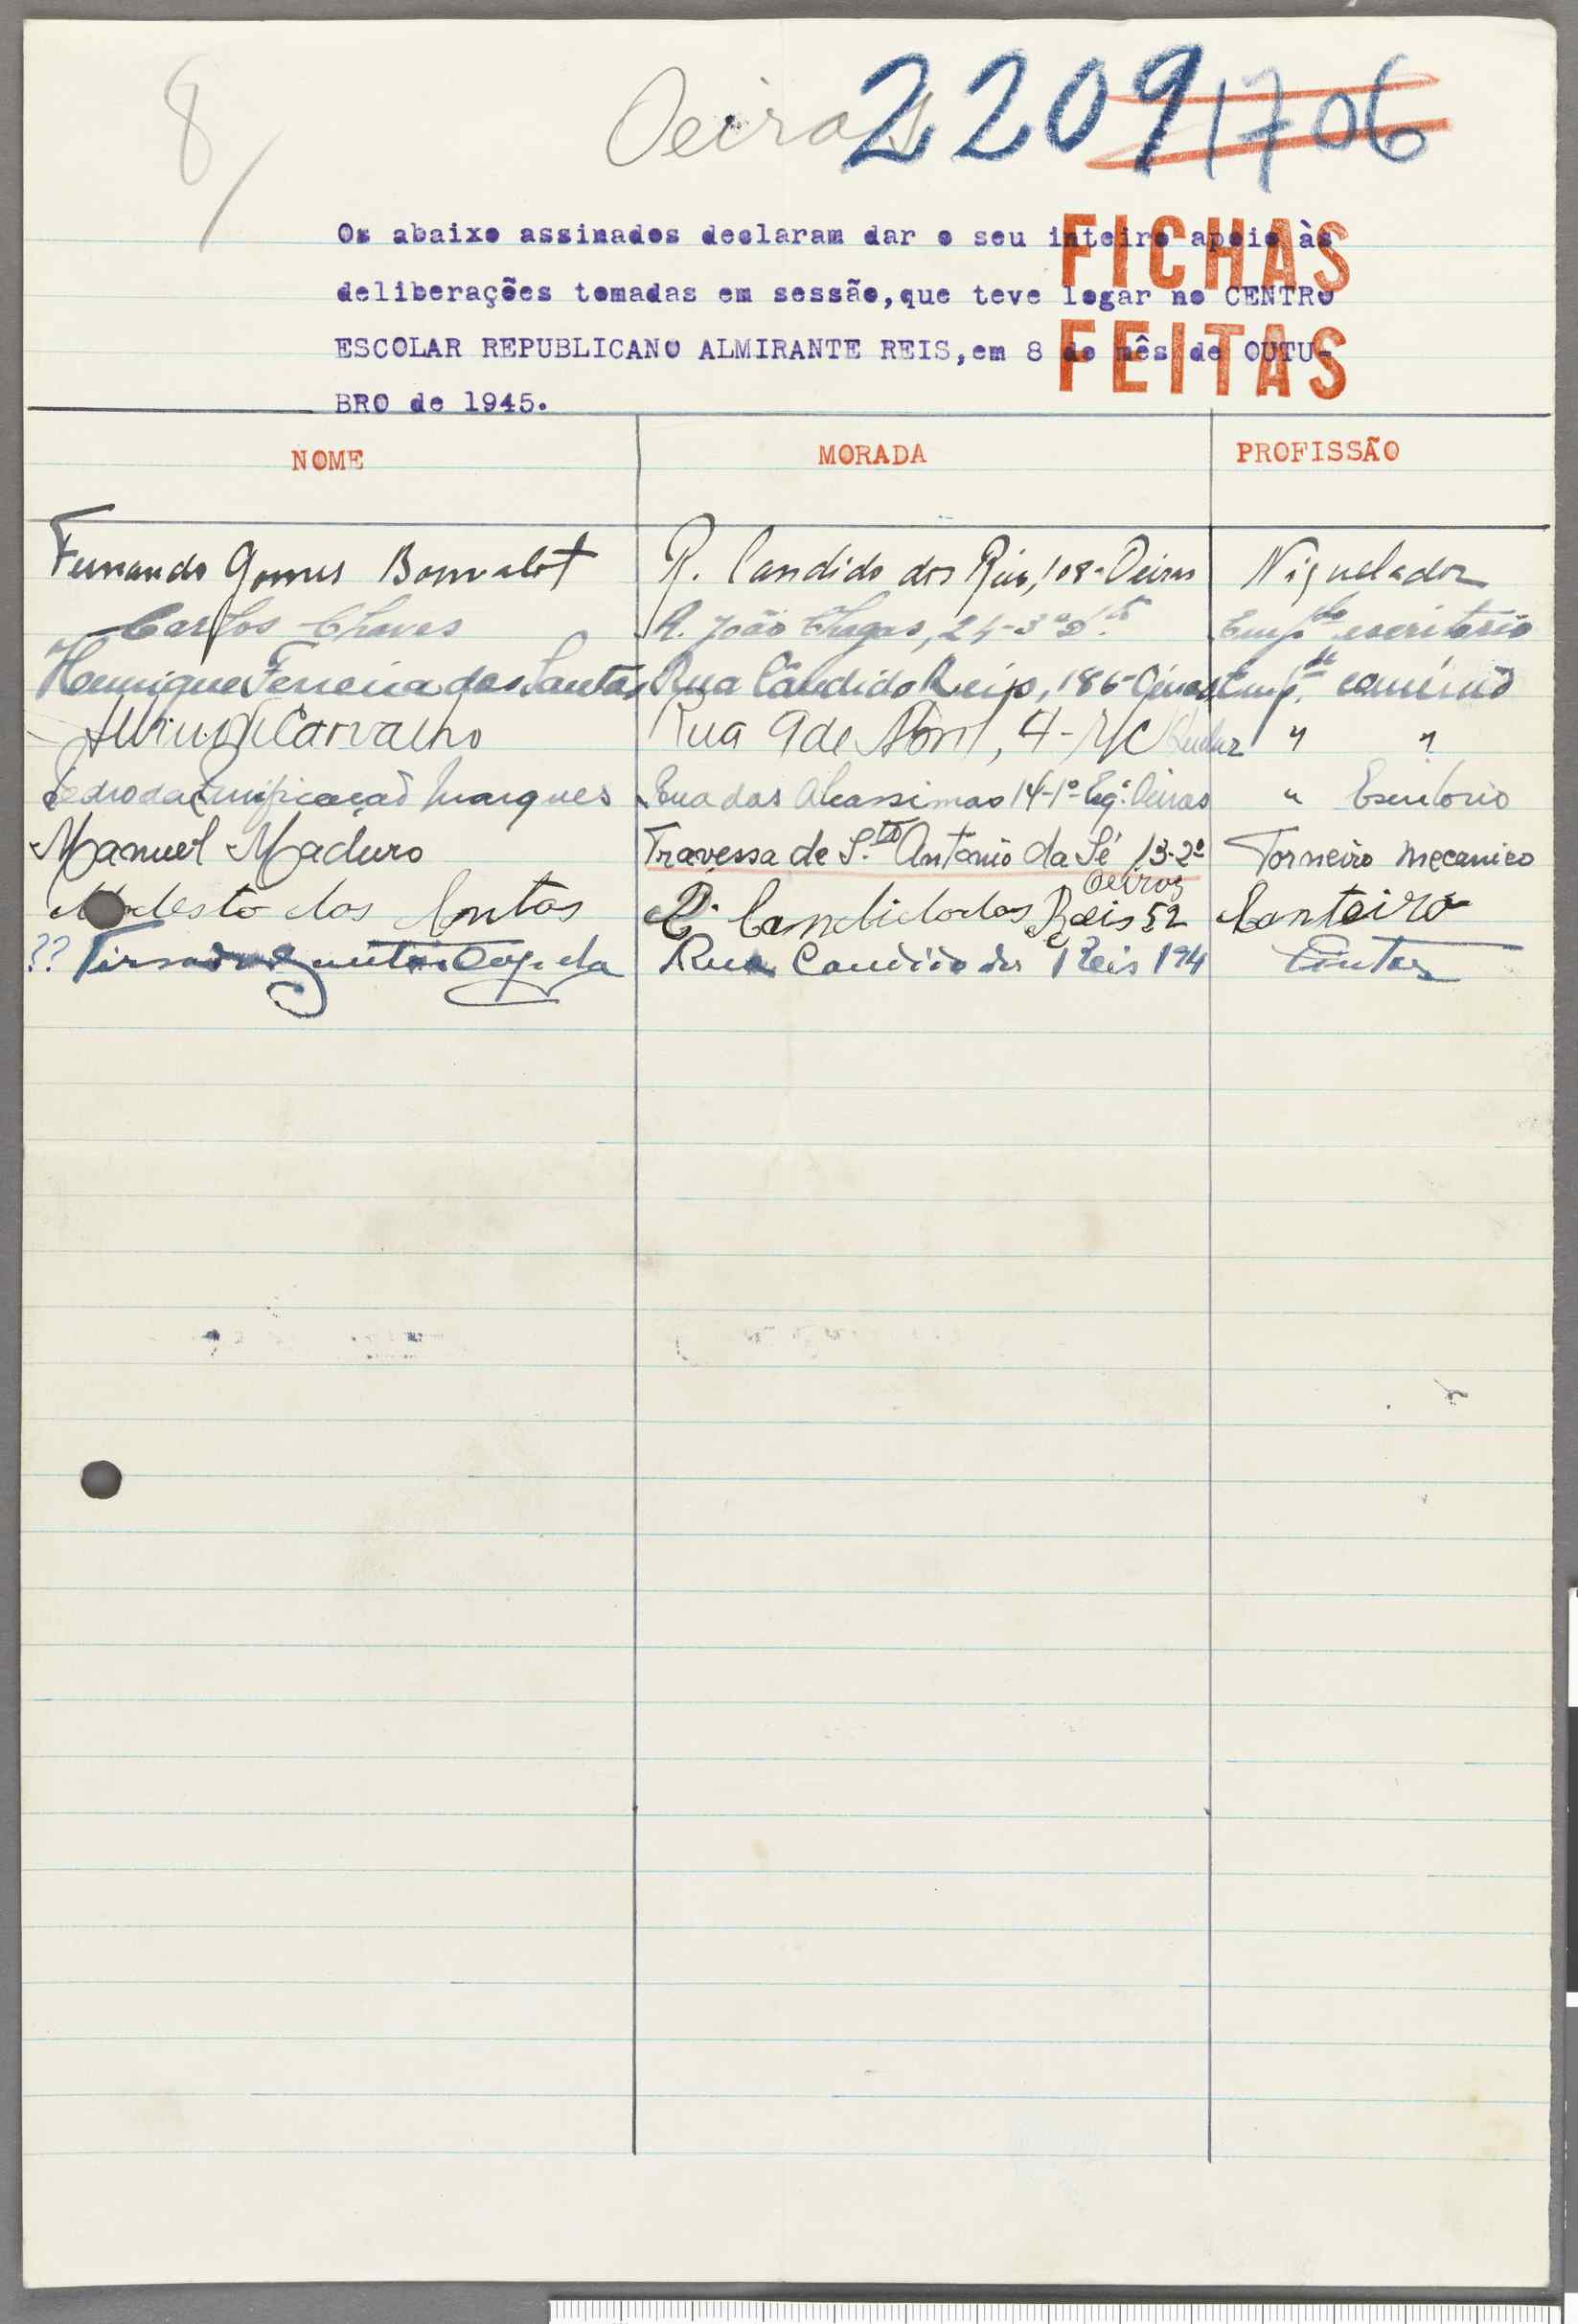 8/
Oeiras 2209 1706
FICHAS
FEITAS
Os abaixo assinados declaram dar o seu inteiro apoio às
deliberações tomadas em sessão,que teve logar no CENTRO
ESCOLAR REPUBLICANO ALMIRANTE REIS,em 8 do mês de OUTU-
BRO de 1945.
NOME MORADA PROFISSÃO
Fernando Gomes Bonvalot R. Candido dos Reis, 108-Oeiras Niquelador
Carlos Chaves R. João Chagas, 24-3º D.to Emp.do escritório
Henrique Ferreira dos Santos Rua Cândido Reis, 186-Oeiras Emp.de comércio
de Carvalho Rua 9 de Abril, 4-r/c " "
Pedro da Marques Rua das 14-1º Esq. Oeiras " Escritorio
Manuel Maduro Travessa de S.to António da Sé 13-2º Torneiro mecanico
Modesto dos Santos R. Candido dos Reis 52 Oeiras Canteiro
?? Rua Candido dos Reis 194 Pintor